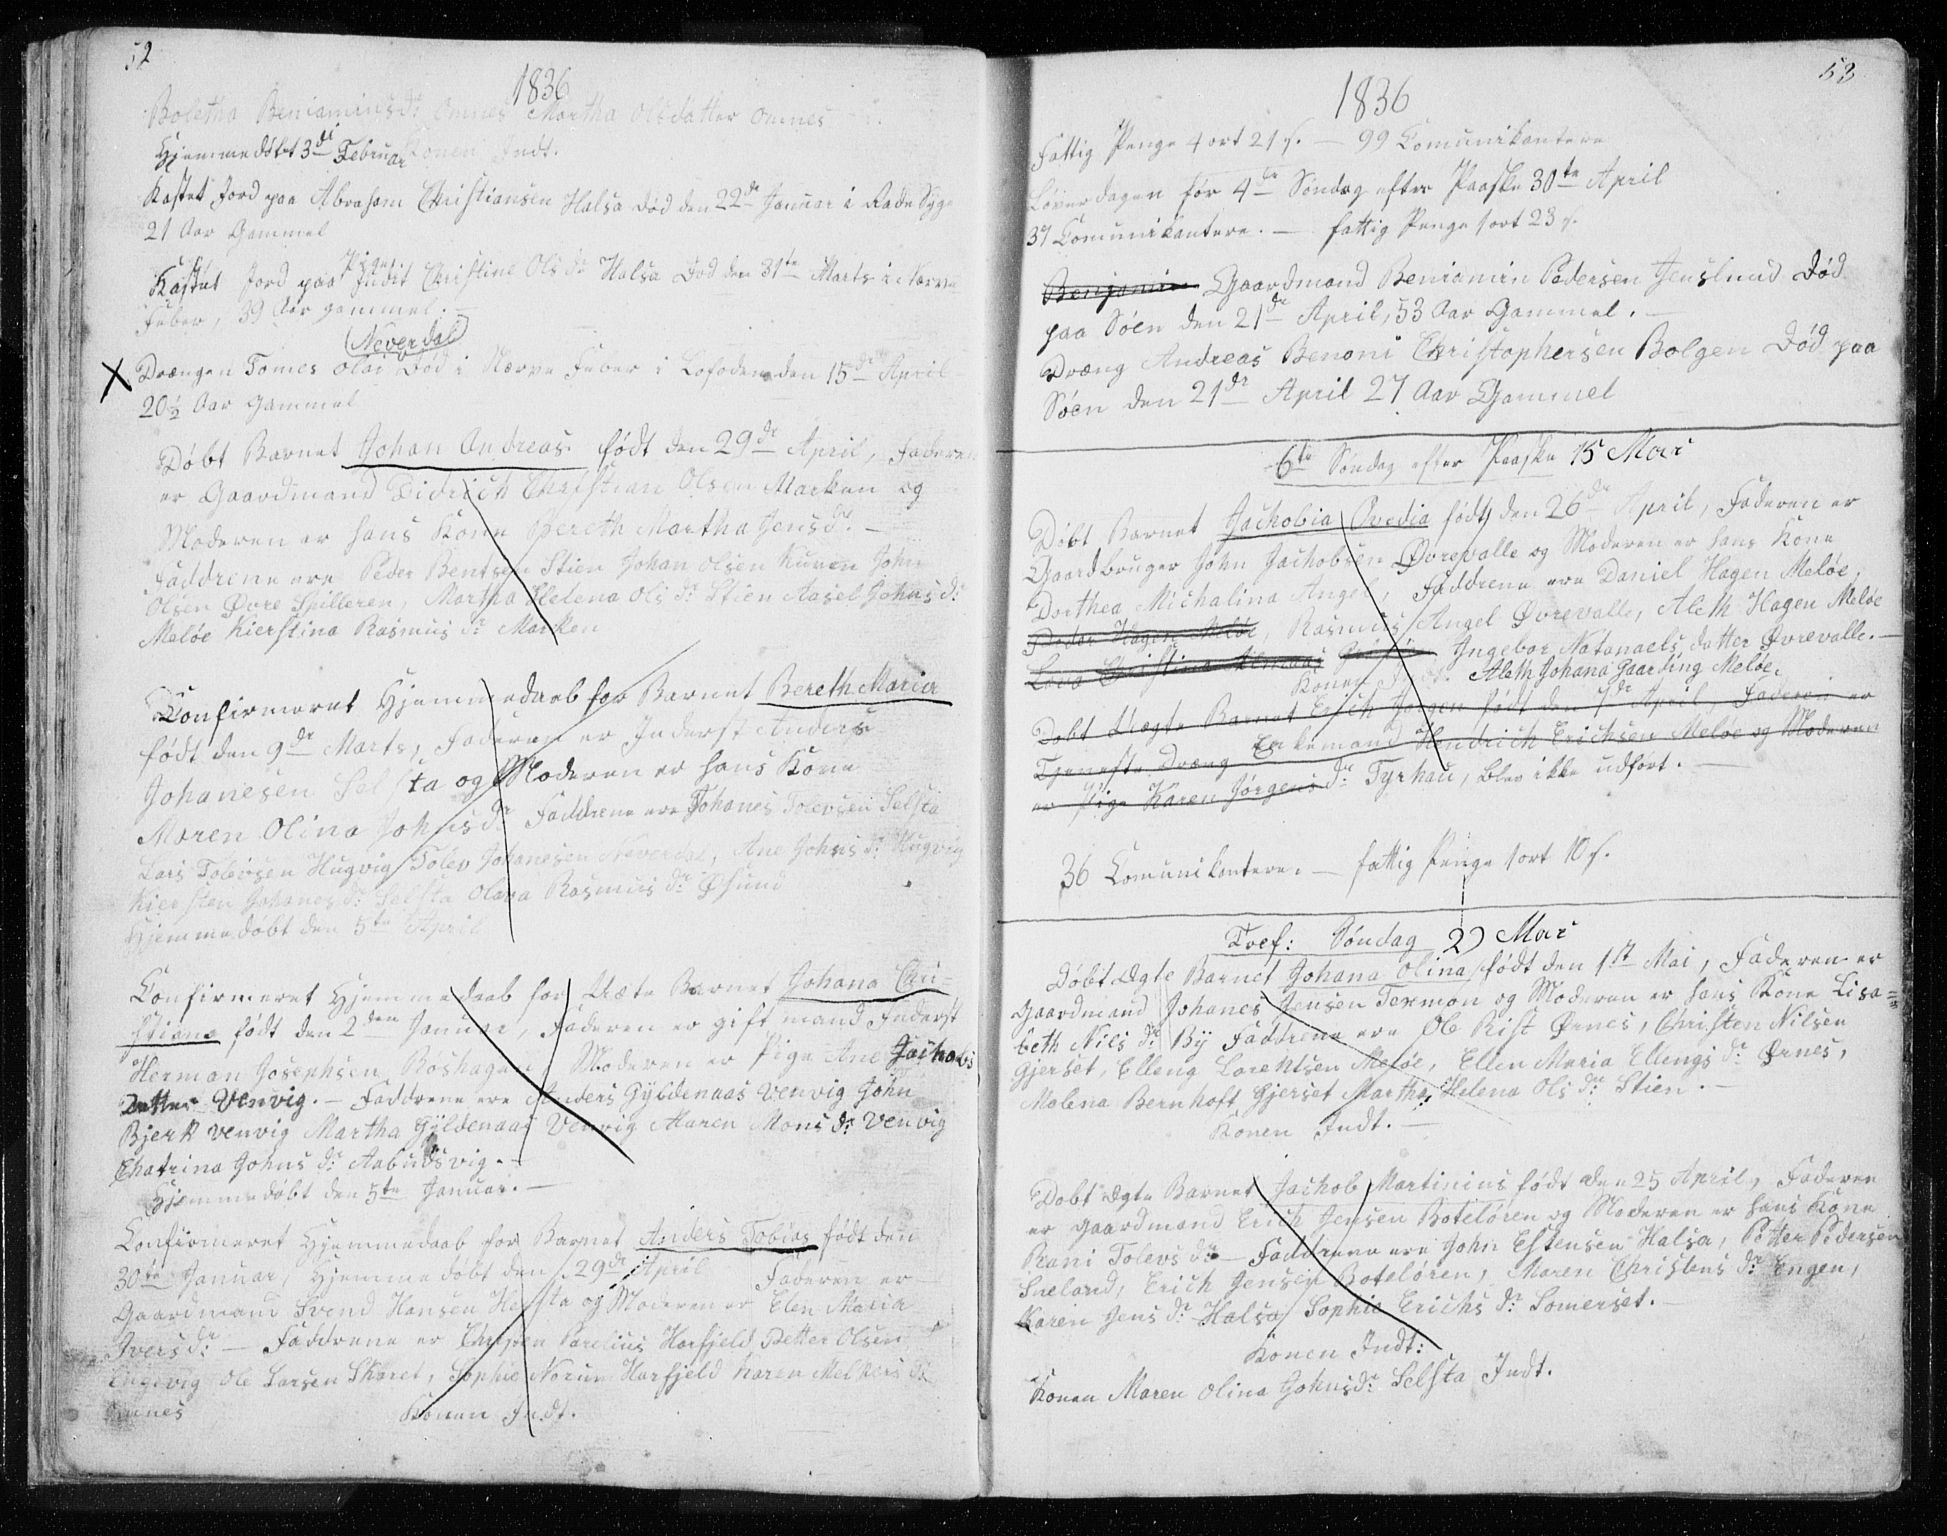 52
1836
Boletha Beniaminsdr Omnes Martha Olsdatter Omnes
Hjemmedøbt 3de Februar Konen Indt.
Kastet Jord paa Abraham Christiansen Halsa død den 22de Januar i Rade Syge
21 Aar Gammel
Kastet Jord paa Pigen Judit Christine Ols dr Halsa Død den 31te Marts i Nærve
Feber, 39 Aar gammel.
Neverdal
X Drængen Tomes Olai Død i Nærve Feber i Lofoden den 15de April
20½ Aar gammel
Døbt Barnet Johan Andreas født den 29de April, Faderen
er Gaardmand Didrich Christian Olsen Marken og
Moderen er hans Kone Bereth Martha Jensdr. —
Faddrene ere Peder Bentsen Stien Johan Olsen Kunen John
Olsen Øvre Spilleren, Martha Helena Ols dr Stien Aasel Johns dr
Meløe Kierstina Rasmus dr Marken
Confirmeret Hjemmedaab for Barnet Bereth Maria
født den 9de Marts, Faderen er Inderst Anders
Johanesen Selsta og Moderen er hans Kone
Maren Olina Johnsdr Faddrene ere Johanes Tolevsen Selsta
Lars Tolevsen Hugvig Tolev Johanesen Neverdal, Ane Johns dr Hugvig
Kiersten Johanesdr Selsta Olava Rasmus dr Øsund
Hjemmedøbt den 5te April
Confirmeret Hjemmedaab for Uæte Barnet Johana Chri-
stiana født den 2den Januar, Faderen er gift mand Inderst
Herman Josephsen Røshagen Moderen er Pige Ane Jachobs
Datter Venvig. — Faddrene ere Anders Gyldenaas Venvig John
Bjerk Venvig Martha Gyldenaas Venvig Maren Mons dr Venvig
Chatrina Johns dr Aabudsvig. —
Hjemmedøbt den 5te Januar. —
Confirmeret Hjemmedaab for Barnet Anders Tobias født den
30te Januar, Hjemmedøbt den 29de April Faderen er
Gaardmand Svend Hansen Helsta og Moderen er Elen Maria
Iversdr — Faddrene er Christen Parelius Horfjeld Petter Olsen
Engevig Ole Larsen Skaret, Sophie Norum Horfjeld Karen Melkers dr
Omnes Konen Indt.
53
1836
Fattig Penge 4 ort 21 s. — 99 Comunikantere
Løverdagen før 4de Søndag efter Paaske 30te April
37 Comunikantere. — fattig Penge 1 ort 23 s.
Benjamin Gaardmand Beniamin Pedersen Jenslund Død
paa Søen den 21de April, 53 Aar Gammel. —
Dræng Andreas Benoni Christophersen Bolgen Død paa
Søen den 21de April 27 Aar Gammel
6te Søndag efter Paaske 15 Mai
Døbt Barnet Jachobia Ovedia født den 26de April, Faderen er
Gaardbruger John Jachobsen Øvrevalle og Moderen er hans Kone
Dorthea Michalina Angel, Faddrene ere Daniel Hagen Meløe,
Peder Hagen Meløe, Rasmus Angel Øvrevalle, Aleth Hagen Meløe
Ingebor Natanaels datter Øvrevalle. —
Konen Indt. Aleth Johana Gaarding Meløe.
Døbt Uægte Barnet Erich Jørgen født den 7de April, Faderen er
Tjeneste Dræng Enkemand Hendrich Erichsen Meløe og Moderen
er Pige Karen Jørgens dr Tyrhau, blev ikke udført. —
36 Comunikantere. — fattig Penge 1 ort 10 s.
Tref: Søndag 29 Mai
Døbt Ægte Barnet Johana Olina født den 1st Mai, Faderen er
Gaardmand Johanes Jensen Termon og Moderen er hans Kone Lisa-
beth Niels dr By Faddrene ere Ole Rist Ørnes, Christen Nilsen
Gjerset, Elleng Lorentsen Meløe, Elen Maria Ellengs dr Ørnes,
Malena Bernhoft Gjerset Martha Helena Ols dr Stien. —
Konen Indt. —
Døbt Ægte Barnet Jachob Martinius født den 25 April, Faderen
er Gaardmand Erich Jensen Boteløren og Moderen er hans Kone
Rani Tolevs dr — Faddrene ere John Estensen Halsa, Petter Pedersen
Sneland, Erich Jensen Boteløren, Maren Christens dr Engen,
Karen Jens dr Halsa Sophie Erichs dr Somerset. —
Konen Indt:
Konen Maren Olina Johnsdr Selsta Indt.